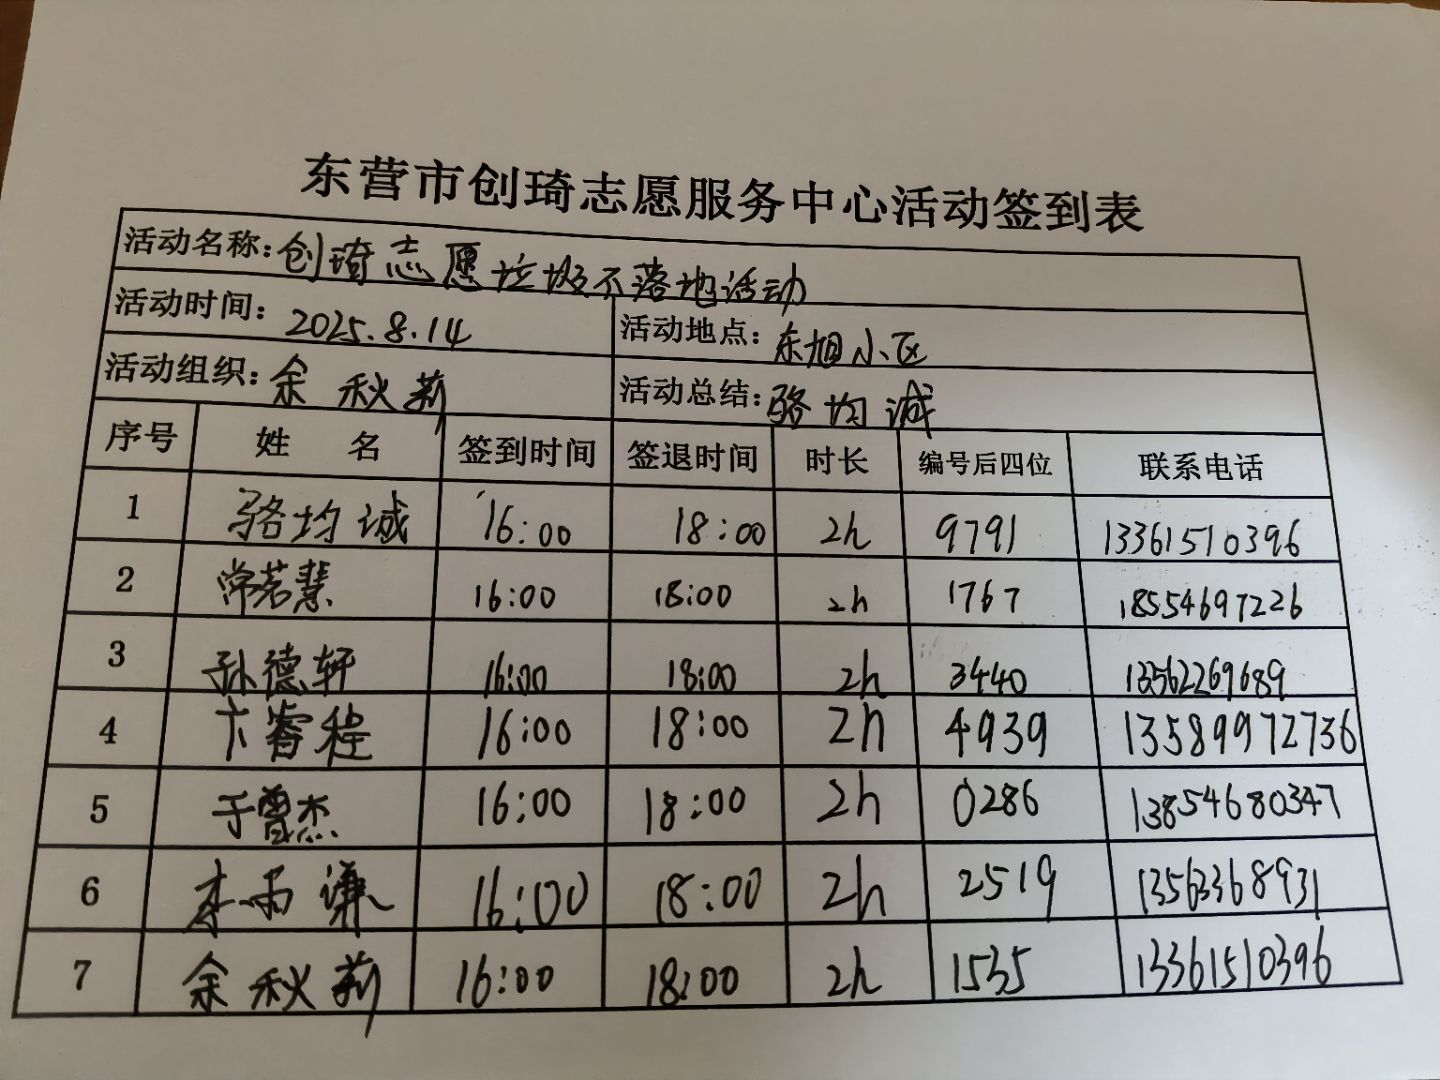 东营市创琦志愿服务中心活动签到表
活动名称:创琦志愿垃圾不落地活动
活动时间: 2025.8.14 活动地点: 东旭小区
活动组织: 余秋莉 活动总结: 骆均诚
序号 姓 名 签到时间 签退时间 时长 编号后四位 联系电话
1 骆均诚 16:00 18:00 2h 9791 13361510396
2 常若慧 16:00 18:00 2h 1767 18554697226
3 孙德轩 16:00 18:00 2h 3440 13562269689
4 卞睿程 16:00 18:00 2h 4939 13589972736
5 于曾杰 16:00 18:00 2h 0286 13854680347
6 李雨谦 16:00 18:00 2h 2519 13563368931
7 余秋莉 16:00 18:00 2h 1535 13361510396